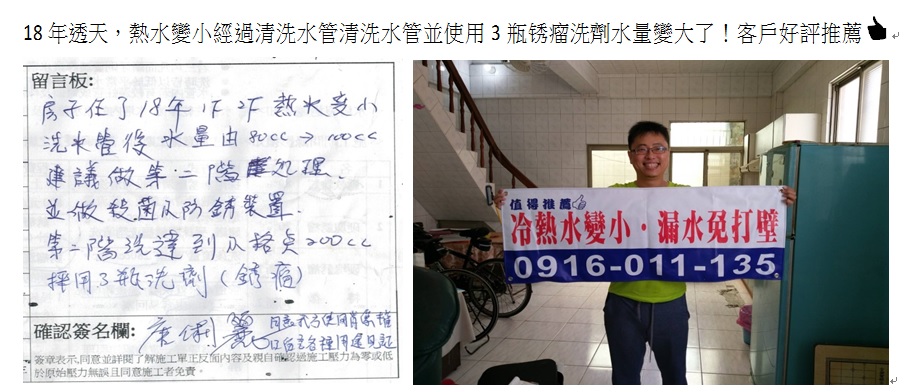 18 年透天，熱水變小經過清洗水管清洗水管並使用 3 瓶锈瘤洗劑水量變大了！客戶好評推薦
留言板:
房子住了18年 1F 2F 熱水变小
洗水管後 水量由 80cc → 100cc
建議做第二階處理.
並做殺菌及防銹裝置.
第二階洗達到及格点 200cc
採用3瓶洗劑 (銹瘤)
確認簽名欄:
簽章表示,同意並詳閱了解施工單正反面內容及親自確認過施工壓力為零或低
於原始壓力無誤且同意施工者免責。
值得推薦
冷熱水變小·漏水免打壁
0916-011-135